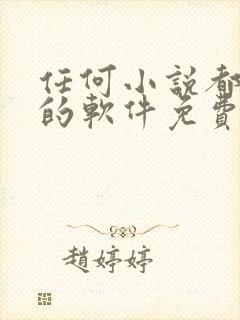 任何小説都
的軟件免費
趙婷婷